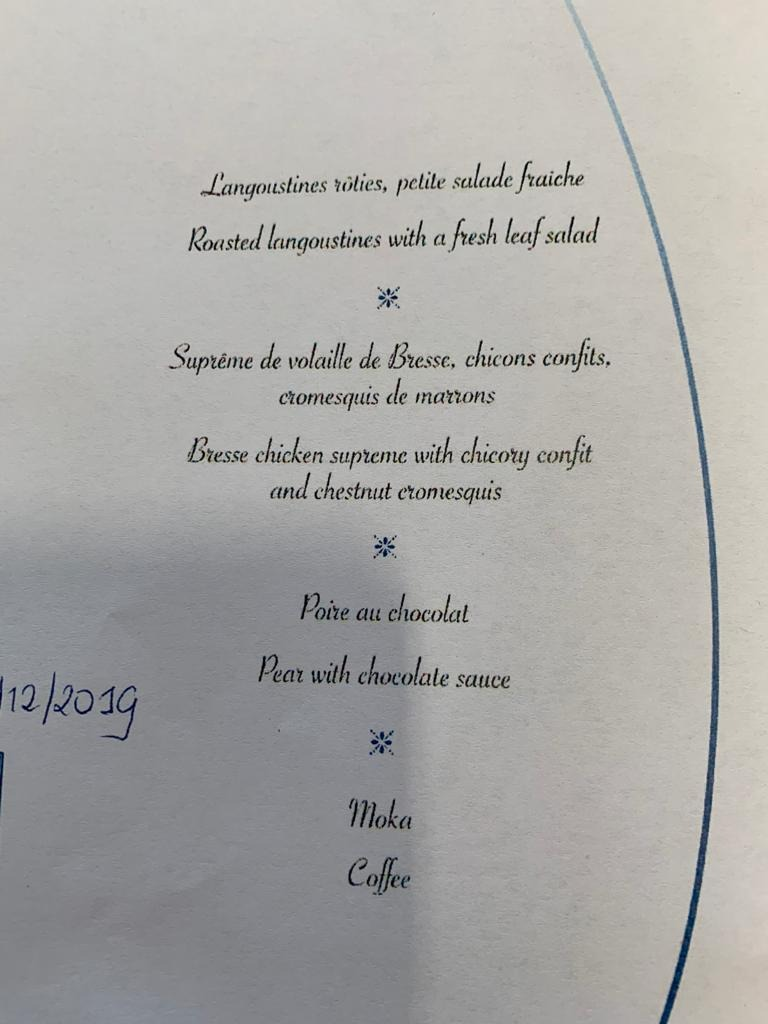 Langoustines rôties, petite salade fraîche
Roasted langoustines with a fresh leaf salad
Suprême de volaille de Bresse, chicons confits,
cromesquis de marrons
Bresse chicken supreme with chicory confit
and chestnut cromesquis
Poire au chocolat
Pear with chocolate sauce
/12/2019
Moka
Coffee